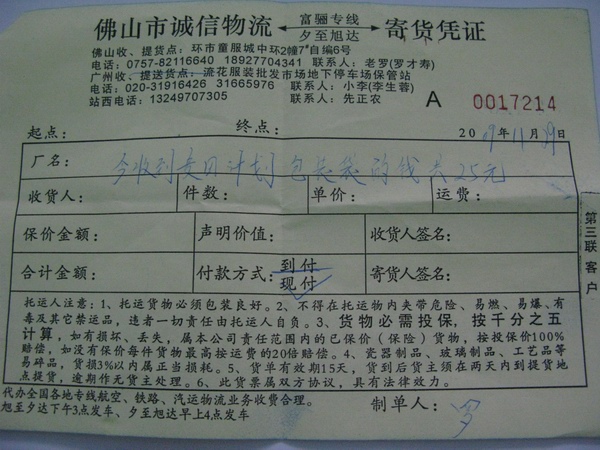 佛山市诚信物流 富骊专线 夕至旭达 寄货凭证
佛山收、提货点：环市童服城中环2幢7#自编6号
电话：0757-82116640 18927704341 联系人：老罗(罗才寿)
广州收、提送货点：流花服装批发市场地下停车场保管站
电话：020-31916426 31665976 联系人：小李(李生蓉)
站西电话：13249707305 联系人：先正农
A 0017214
起点： 终点： 2009年11月19日
厂名：今收到麦田计划包装袋的钱共25元
收货人： 件数： 单价： 运费：
保价金额： 声明价值： 收货人签名：
合计金额： 付款方式：到付 现付 寄货人签名：
第三联 客户
托运人注意：1、托运货物必须包装良好。2、不得在托运物内夹带危险、易燃、易爆、有
毒及其它禁运品，违者一切责任由托运人自负。3、货物必需投保，按千分之五
计算，如有损坏、丢失，属本公司责任范围内的已保价（保险）货物，按投保价100%
赔偿，如没有保价每件货物最高按运费的20倍赔偿。4、瓷器制品、玻璃制品、工艺品等
易碎品，货损3%以内属正当损耗。5、货单有效期15天，货到后货主须在两天内到提货地
点提货，逾期作无货主处理。6、此货票属双方协议，具有法律效力。
代办全国各地专线航空、铁路、汽运物流业务收费合理。
旭至夕达下午3点发车、夕至旭达早上4点发车
制单人：罗